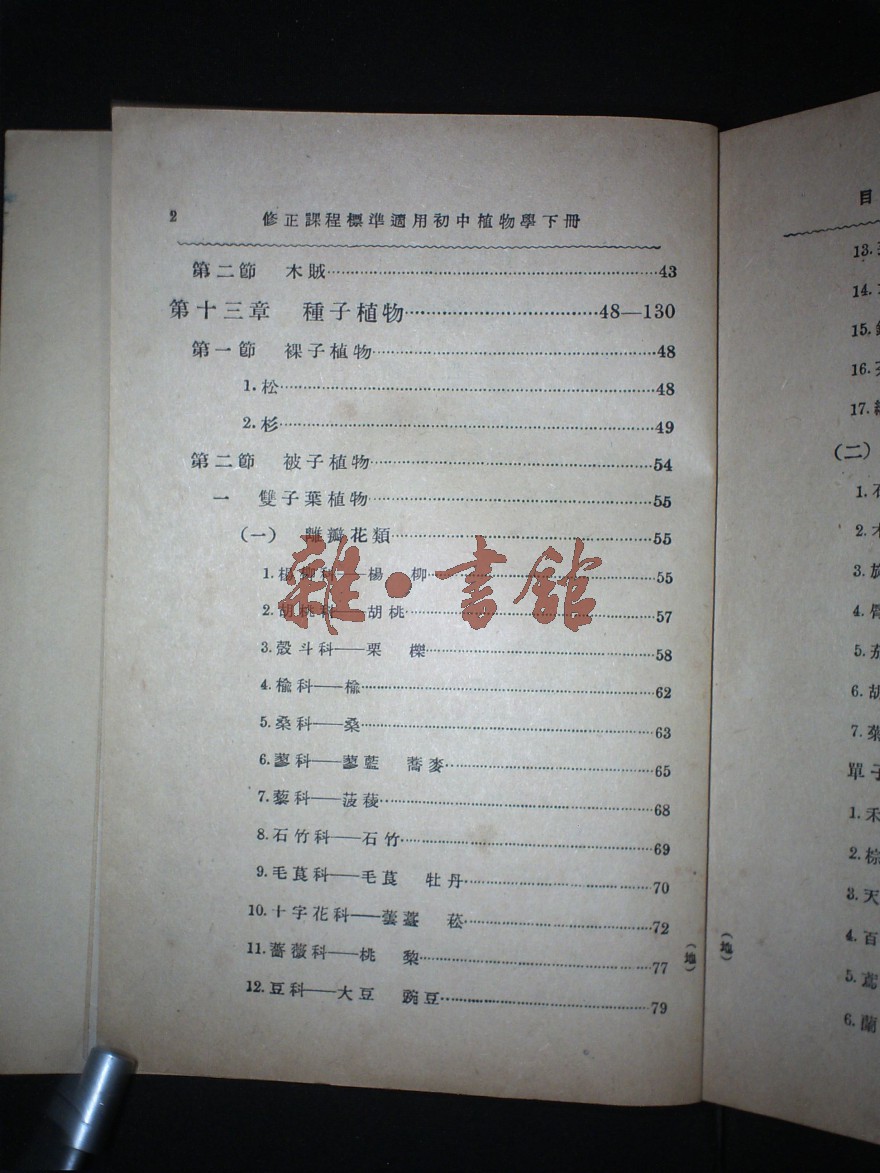 2 修正課程標準適用初中植物學下冊
第二節 木賊……43
第十三章 種子植物……48—130
第一節 裸子植物……48
1.松……48
2.杉……49
第二節 被子植物……54
一 雙子葉植物……55
(一) 離瓣花類……55
1.楊柳科——楊 柳……55
2.胡桃科——胡桃……57
3.殼斗科——栗 櫟……58
4.榆科——榆……62
5.桑科——桑……63
6.蓼科——蓼藍 蕎麥……65
7.藜科——菠薐……68
8.石竹科——石竹……69
9.毛茛科——毛茛 牡丹……70
10.十字花科——蕓薹 菘……72
11.薔薇科——桃 梨……77
12.豆科——大豆 豌豆……79
(地)
雜·書館
目
13.
14.
15.
16.
17.
(二)
1.石
2.木
3.旋
4.
5.茄
6.胡
7.菊
單子
1.禾
2.棕
3.天
4.百
5.鳶
6.蘭
(地)